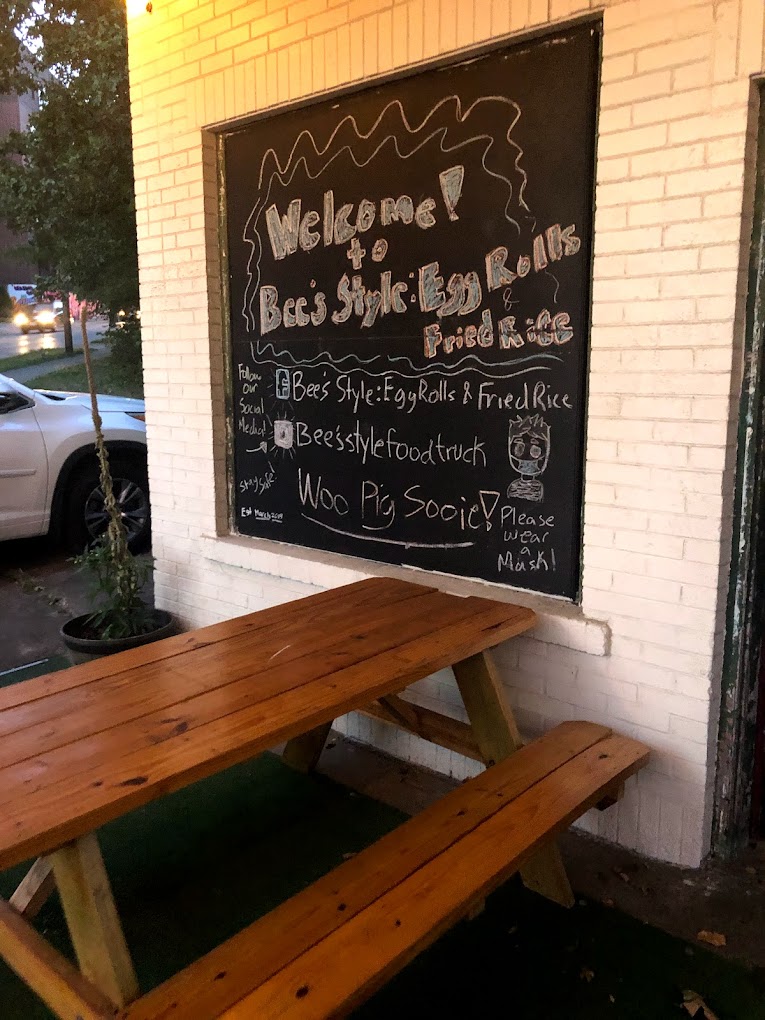 Welcome!
to
Bee's Style: Egg Rolls
&
Fried Rice
Follow
our
Social
Media!
f Bee's Style: Egg Rolls & Fried Rice
Bee'sstylefoodtruck
Stay Safe
Woo Pig Sooie!
Est March 2019
Please
wear
a
Mask!